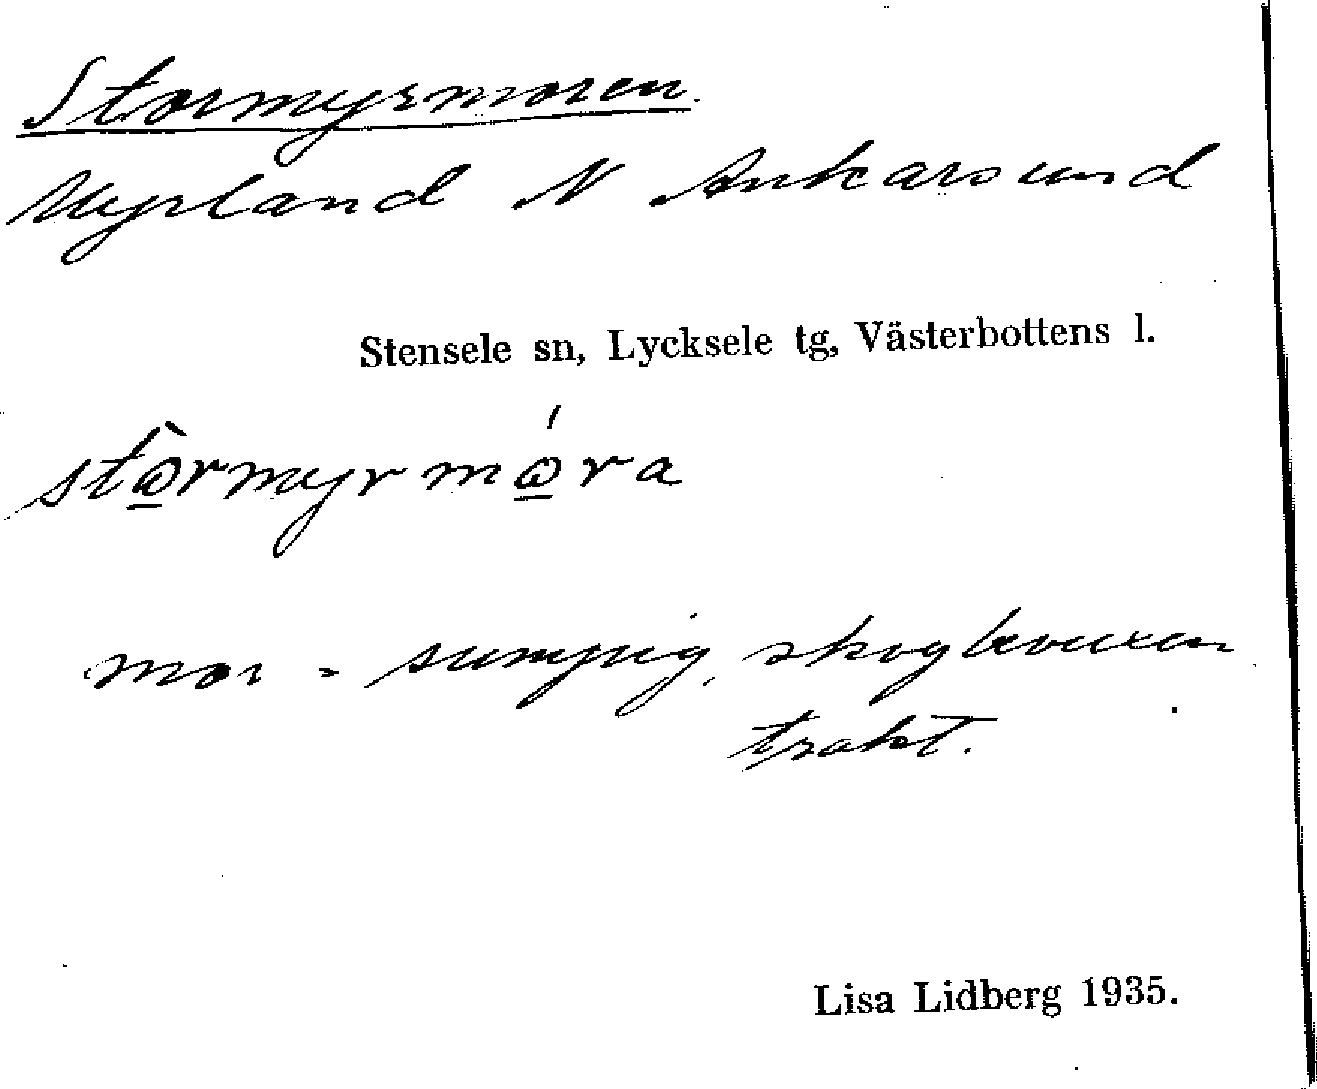 Stormyrmoren
Myrland N Ankarsund
Stensele sn, Lycksele tg, Västerbottens l.
stὼ̲rmyrmώ̲ra
mor = sumpig, skogbevuxen
trakt.
Lisa Lidberg 1935.